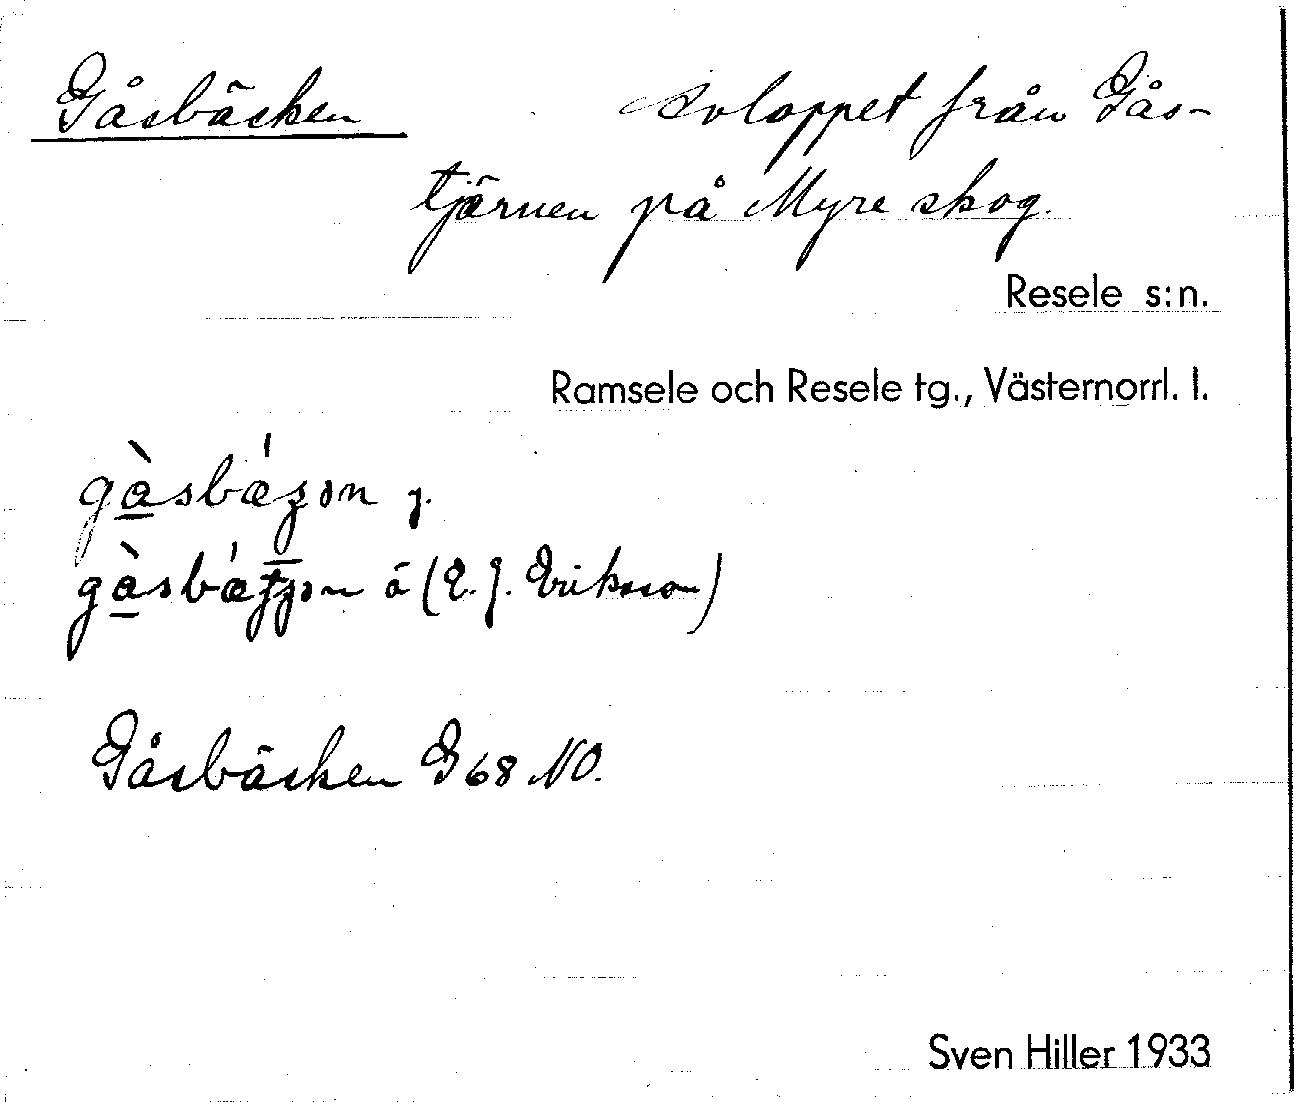 Gåsbäcken avloppet från Gås-
tjärnen på Myre skog.
Resele s:n.
Ramsele och Resele tg., Västernorrl. l.
(E. J. Eriksson)
Gåsbäcken G 68 NO.
Sven Hiller 1933